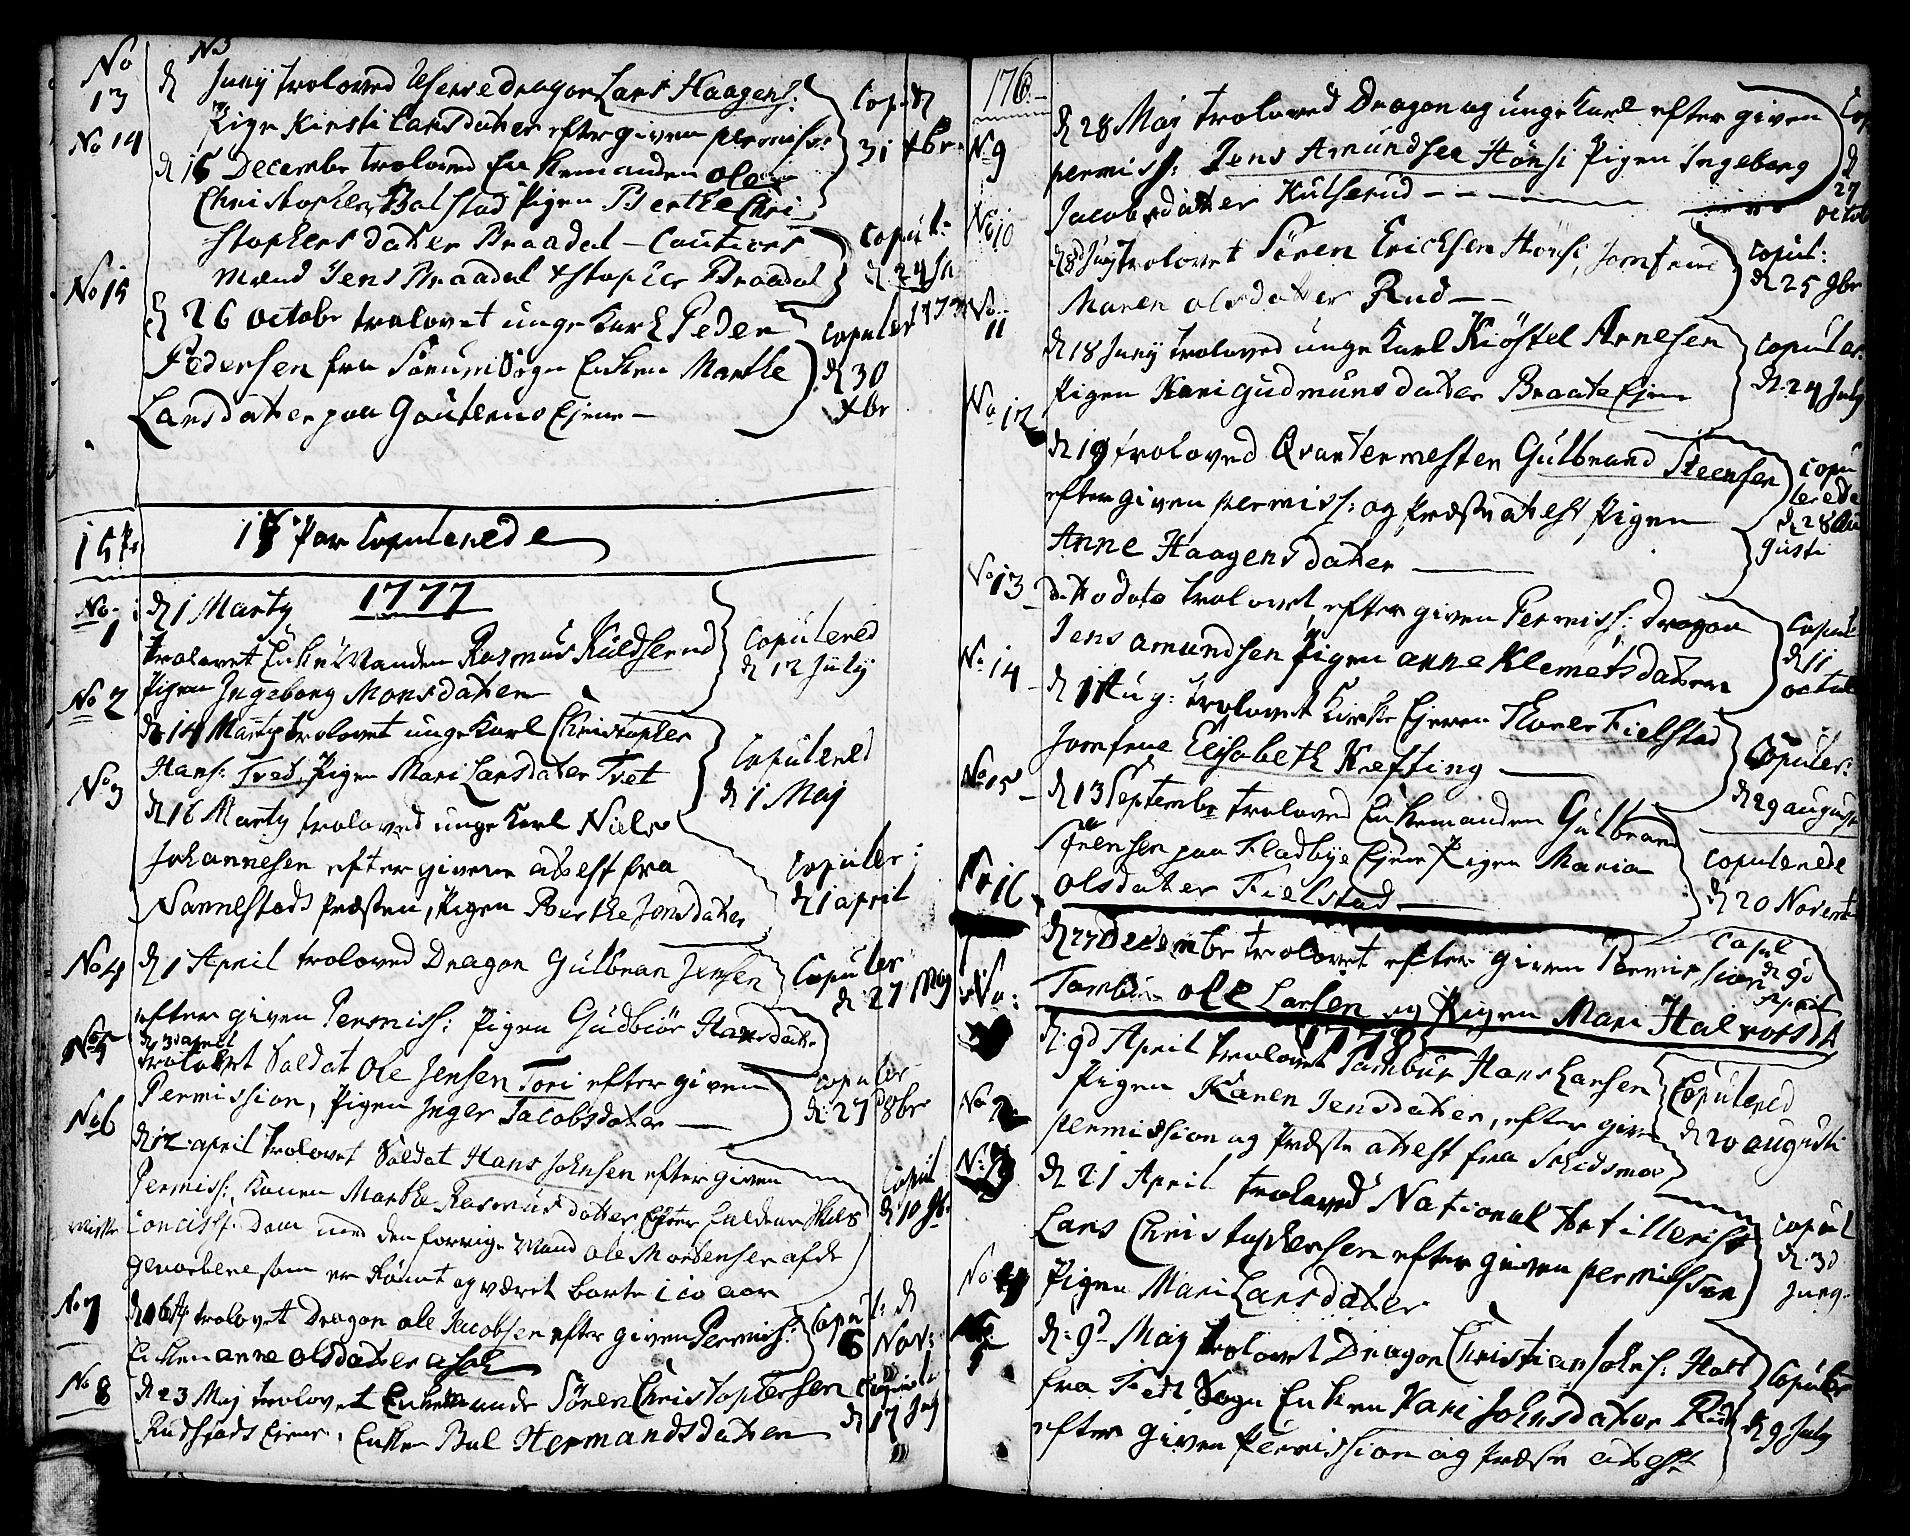 No 13
d Juny troloved Usersedragon Lars Haagens:
Pige Kirsti Larsdater efter given permiss:
Copul: d 31 Xbr
No 14
d 16 Decembr troloved Enkemanden Ole
Christophers: Balstad Pigen Berthe Chri-
stophersdater Braadal - Cautions
mænd Jens Braadal Xstopher Braadal
Copul: d 24 Ja 1777
No 15
d 26 Octobr trolovet unge Karl Peder
Pedersen fra Sørum Sogn Enken Marthe
Larsdater paa Gouterus Ejene -
Copuler d 30 Xbr
15 Pr
15 Par Copulerede
1777
No 1
d 1 Marty
trolovet Enke Manden Rasmus Kuldserud
Pigen Ingeborg Monsdater
Copulered d 12 July
No 2
d 14 Marty trolovet unge Karl Christopher
Hans: Tvet, Pigen Mari Larsdater Tvet
Copulered d 1 Maj
No 3
d 16 Marty troloved unge Karl Niels
Johannesen efter given attest fra
Nannestads Præsten, Pigen Berthe Jonsdater
Copuler: d 1 april
No 4
d 1 April troloved Dragon Gulbran Jensen
efter given Permiss: Pigen Gudbiør Hansdater
Copuler d 27 Maj
No 5
d 3 april
trolovet Soldat Ole Jensen Tori efter given
Permission, Pigen Inger Jacobsdater -
Copuler d: 27 8br
No 6
d 12 april trolovet Soldat Hans Johnsen efter given
Permiss: Konen Marthe Rasmusdatter Efter
dom med den forrige Mand Ole Mortensen afde
som er Rømt og været borte i 10 aar
Copul d 10
No 7
trolovet Dragon Ole Jacobsen efter given Permiss:
Enken Anne Olsdater
Copul: d 6 Nov:
No 8
d 23 Maj trolovet Enkemand Søren Christophersen
Rudstads Ejene, Enken Bal Hermandsdater
Copul: d 17 July
176.
No 9
d 28 Maj troloved Dragon og unge Karl efter given
permiss: Jens Amundsen Hønsi Pigen Ingeborg
Jacobsdater Kulserud - - -
Cop d 27 Octob
No 10
d 8 Juny trolovet Søren Ericksen Hønsi, Jomfrue
Maren Olsdater Rud - -
Copul: d 25 9br
No 11
d 18 Juny troloved unge Karl Kiøstel Arnesen
Pigen Kari Gudmunsdater Braate Ejene
Copuler: d. 24 July
No 12
d 19 troloved Qvartermester Gulbrand Steensen
efter given permiss: og Præste attest Pigen
Anne Haagensdater -
Copulerede d 28 Augusti
No 13
ditto dato trolovet, efter given Permiss: Dragon
Jens Amundsen Pigen Anne Klemetsdater
Copul d 11 octob
No 14
d 1 Aug: trolovet Kirke Ejeren Thorer Fielstad
Jomfrue Elisabeth Krefting -
Copuler: d 29 august
No 15
d 13 Septembr troloved Enkemanden Gulbrand
Steensen paa Fladbye Ejene Pigen Maria
Olsdater Fielstad -
Copulerede d 20 Novemb
No 16
d 27 Decembr trolovet efter given Permission
Tambur Ole Larsen og Pigen Mari Halvorsd
Copul d 9d April
No:
1778
d: 9d April trolovet Tambur Hans Larsen
Pigen Karen Jensdater, efter given
permission og Præste attest fra Schidsmoe
Copulered d 20 augusti
No 2
d 21 April troloved National Artillerist
Lars Christophersen efter given permission
Pigen Mari Larsdater
Copul d: 3d Juny
No
d: 9d Maj trolovet Dragon Christian Johns: Holt
fra Fedt Sogn Enken Kari Johnsdater Rud
efter given Permission og Præste attest
Copuler d 9 July